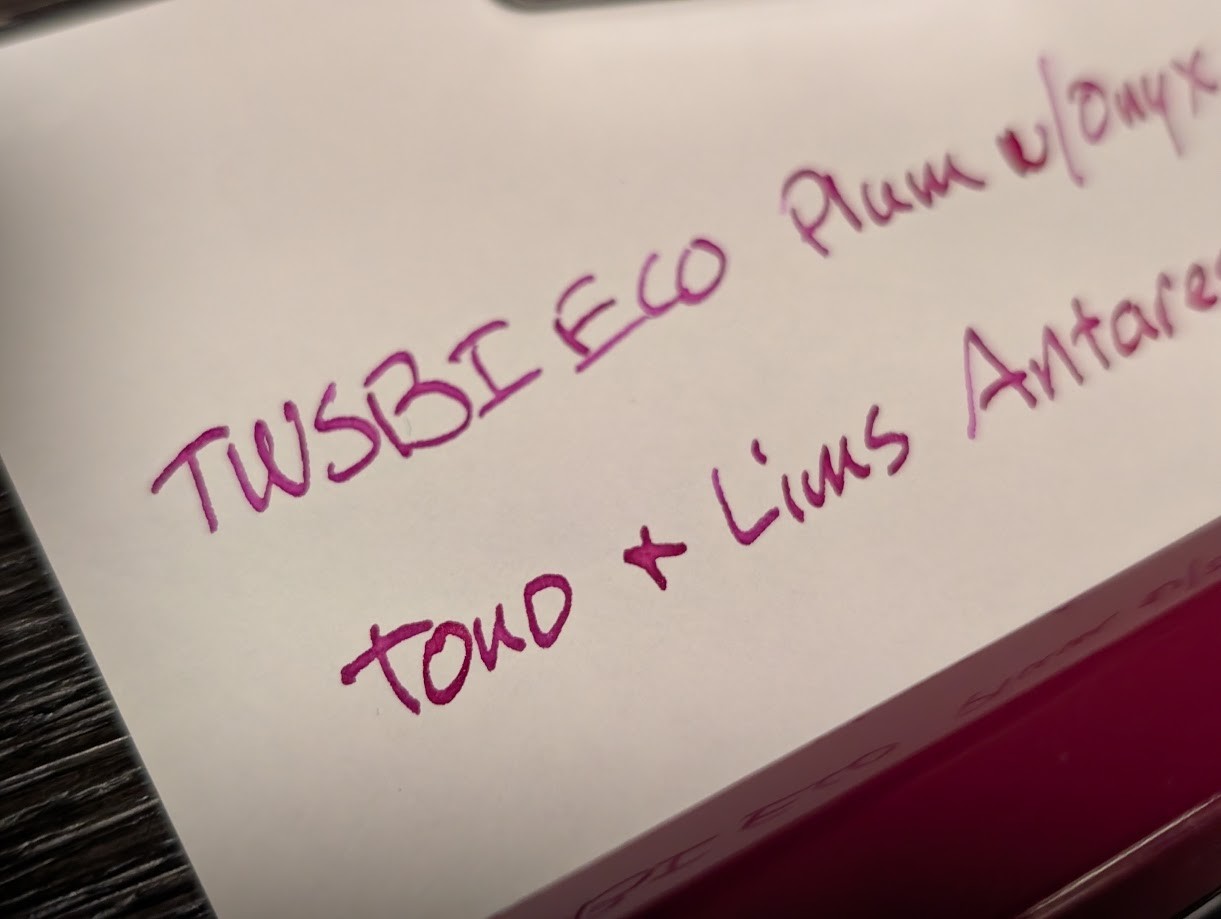 TWSBI ECO Plum w/Onyx
Tono + Lims Antares